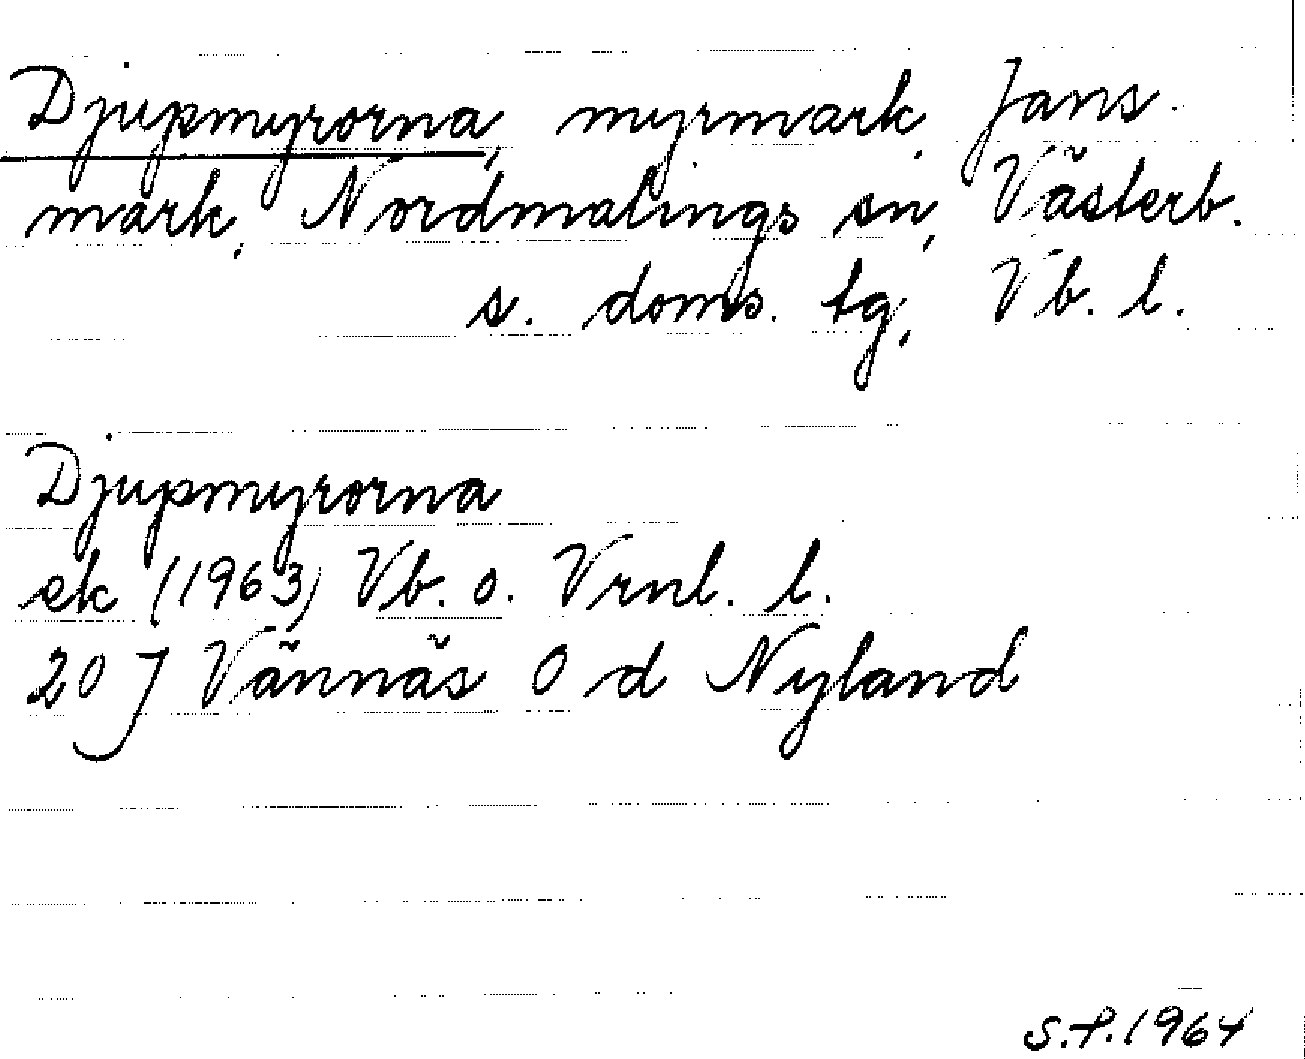 Djupmyrorna, myrmark, Jans-
mark, Nordmalings sn, Västerb.
s. doms. tg, Vb. l.
Djupmyrorna
ek (1963) Vb. o. Vrnl. l.
20 J Vännäs O d Nyland
S.P. 1964